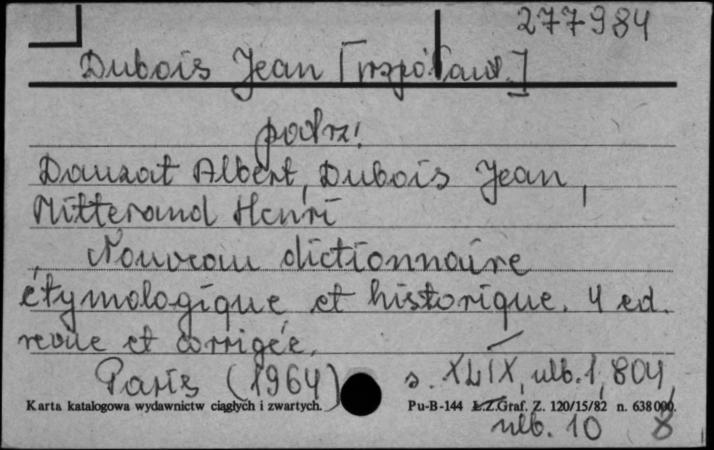 277984
Dubois Jean [współaut.]
podrz!
Dauzat Albert, Dubois Jean,
Mitterand Henri
Nouveau dictionnaire
étymologique et historique. 4 ed.
revue et corrigée.
Paris (1964) s. XLIX, nlb. 1, 804,
Karta katalogowa wydawnictw ciągłych i zwartych. Pu-B-144 Ł.Z.Graf. Z. 120/15/82 n. 638000.
nlb. 10 8